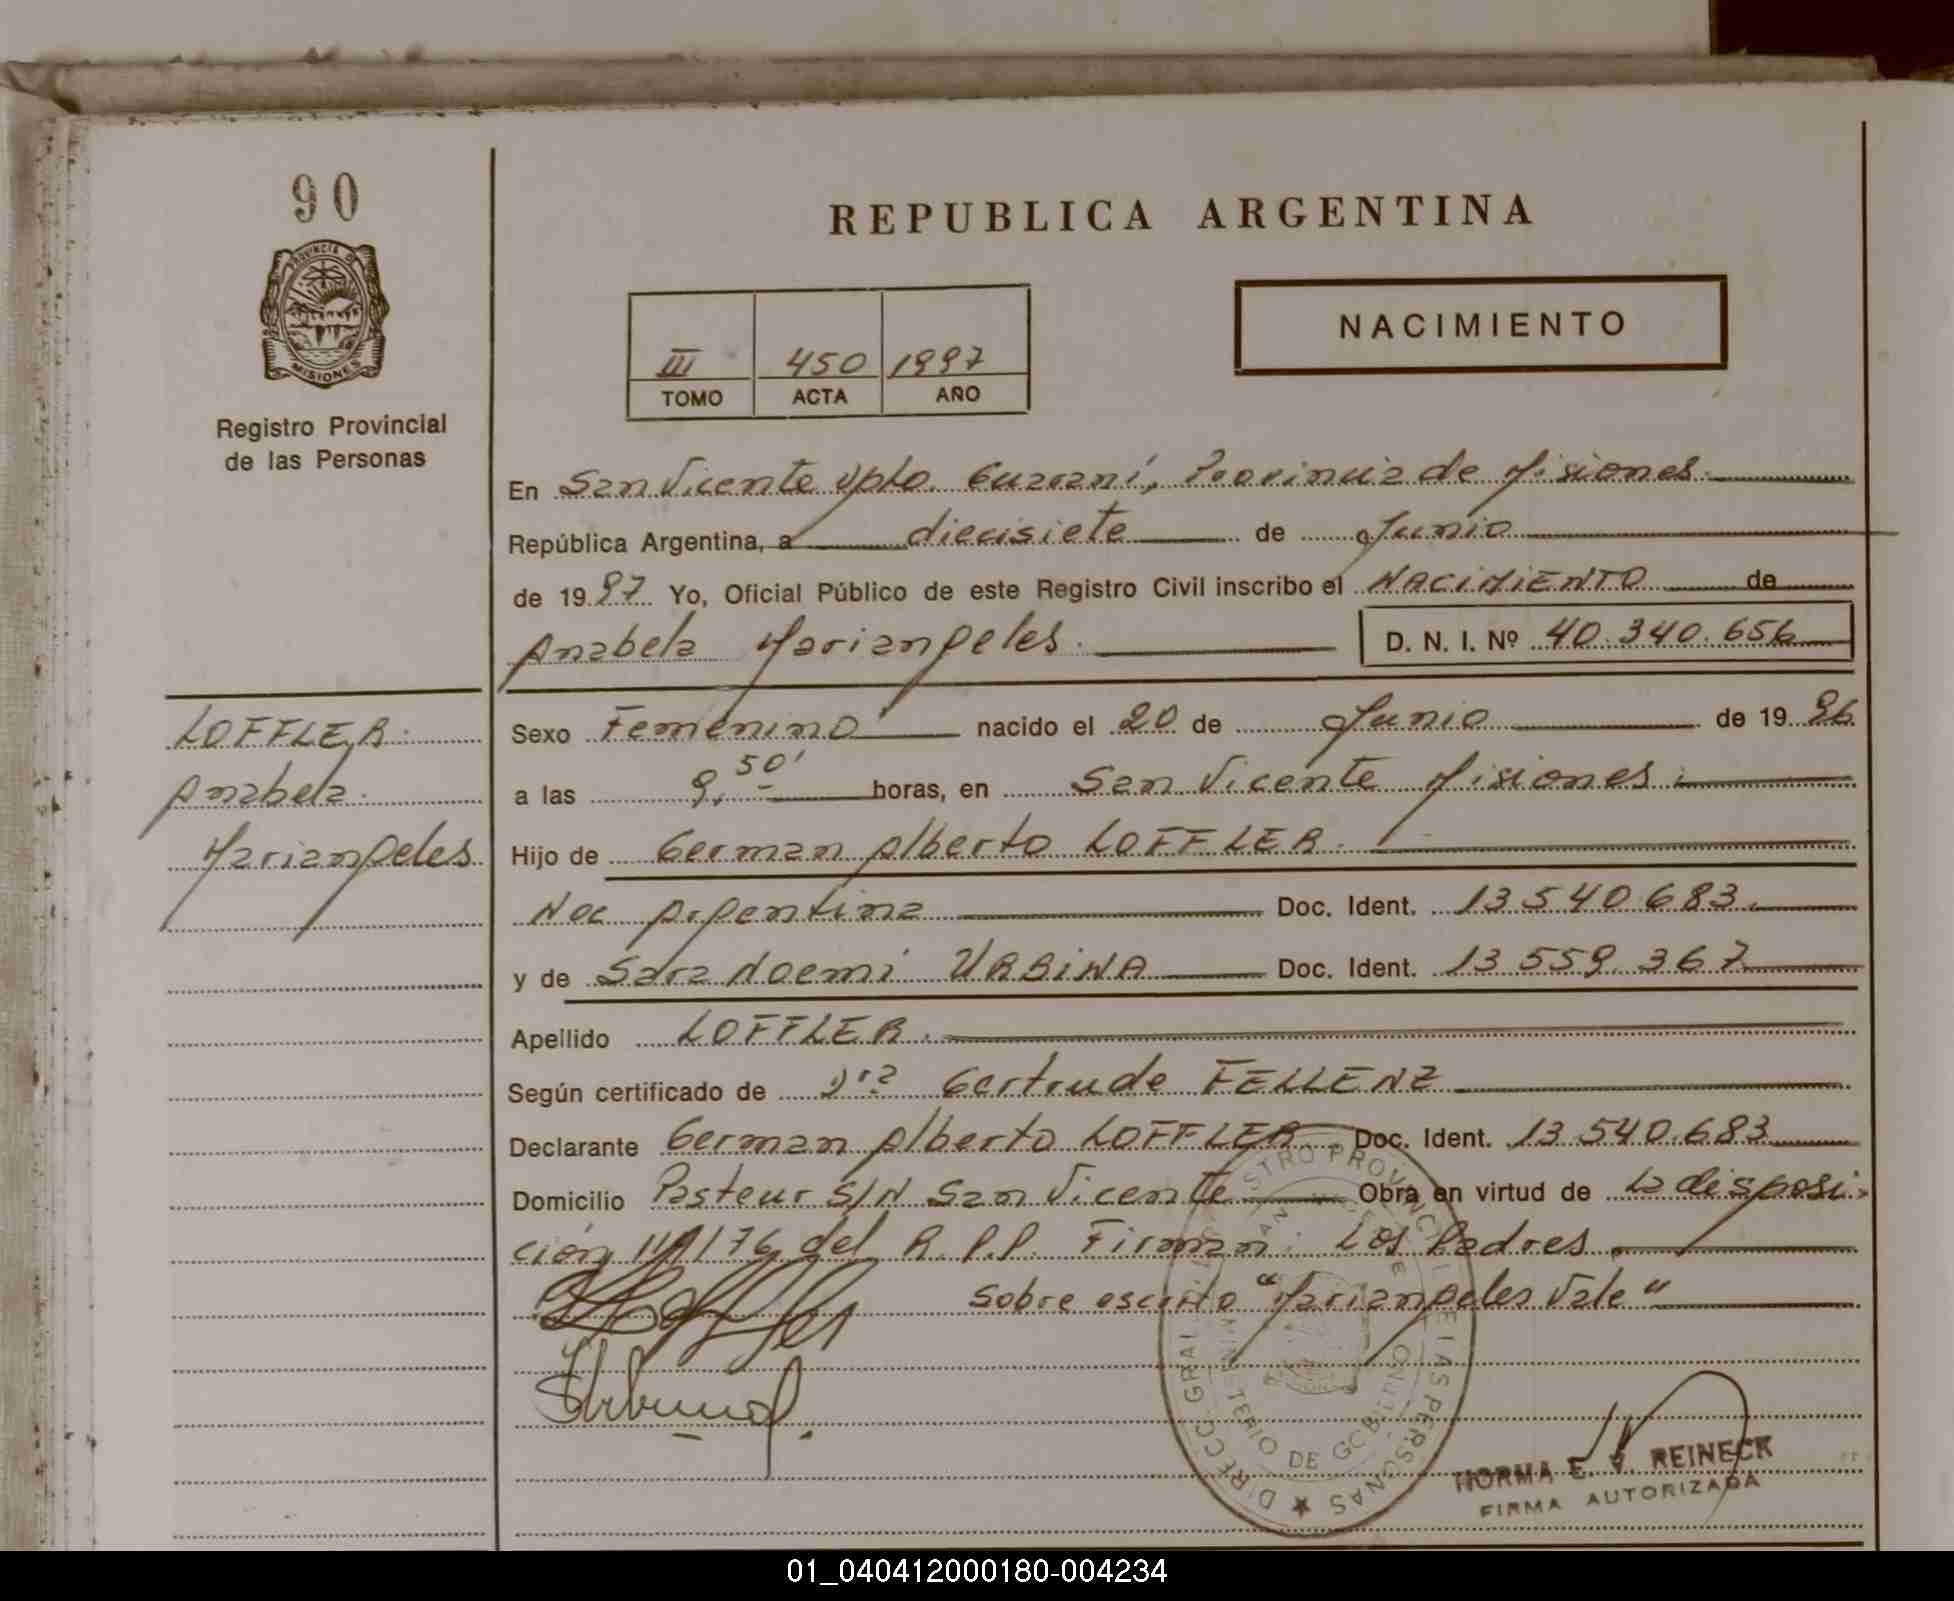 90
PROVINCIA DE
MISIONES
Registro Provincial
de las Personas
REPUBLICA ARGENTINA
NACIMIENTO
III 450 1997
TOMO ACTA AÑO
En San Vicente Dpto. Guarani, Provincia de Misiones.
República Argentina, a diecisiete de Junio
de 1997 Yo, Oficial Público de este Registro Civil inscribo el NACIMIENTO de
Anabela Mariangeles. D. N. I. Nº 40.340.656
LOFFLER.
Anabela.
Mariangeles
Sexo Femenino nacido el 20 de Junio de 1996
a las 9,50' horas, en San Vicente Misiones.
Hijo de German Alberto LOFFLER.
Nac Argentina Doc. Ident. 13.540.683.
y de Sara Noemi URBINA Doc. Ident. 13.559.367
Apellido LOFFLER.
Según certificado de Dra Gertrude FELLENZ
Declarante German Alberto LOFFLER Doc. Ident. 13.540.683
Domicilio Pasteur S/N San Vicente Obra en virtud de La disposi-
ción 111/76 del R.P.P. Firman: Los Padres.
Sobre escrito "Mariangeles Vale"
DIRECC. GRAL. REGISTRO PROVINCIAL DE LAS PERSONAS
MINISTERIO DE GOBIERNO
NORMA E. V. REINECK
FIRMA AUTORIZADA
01_040412000180-004234